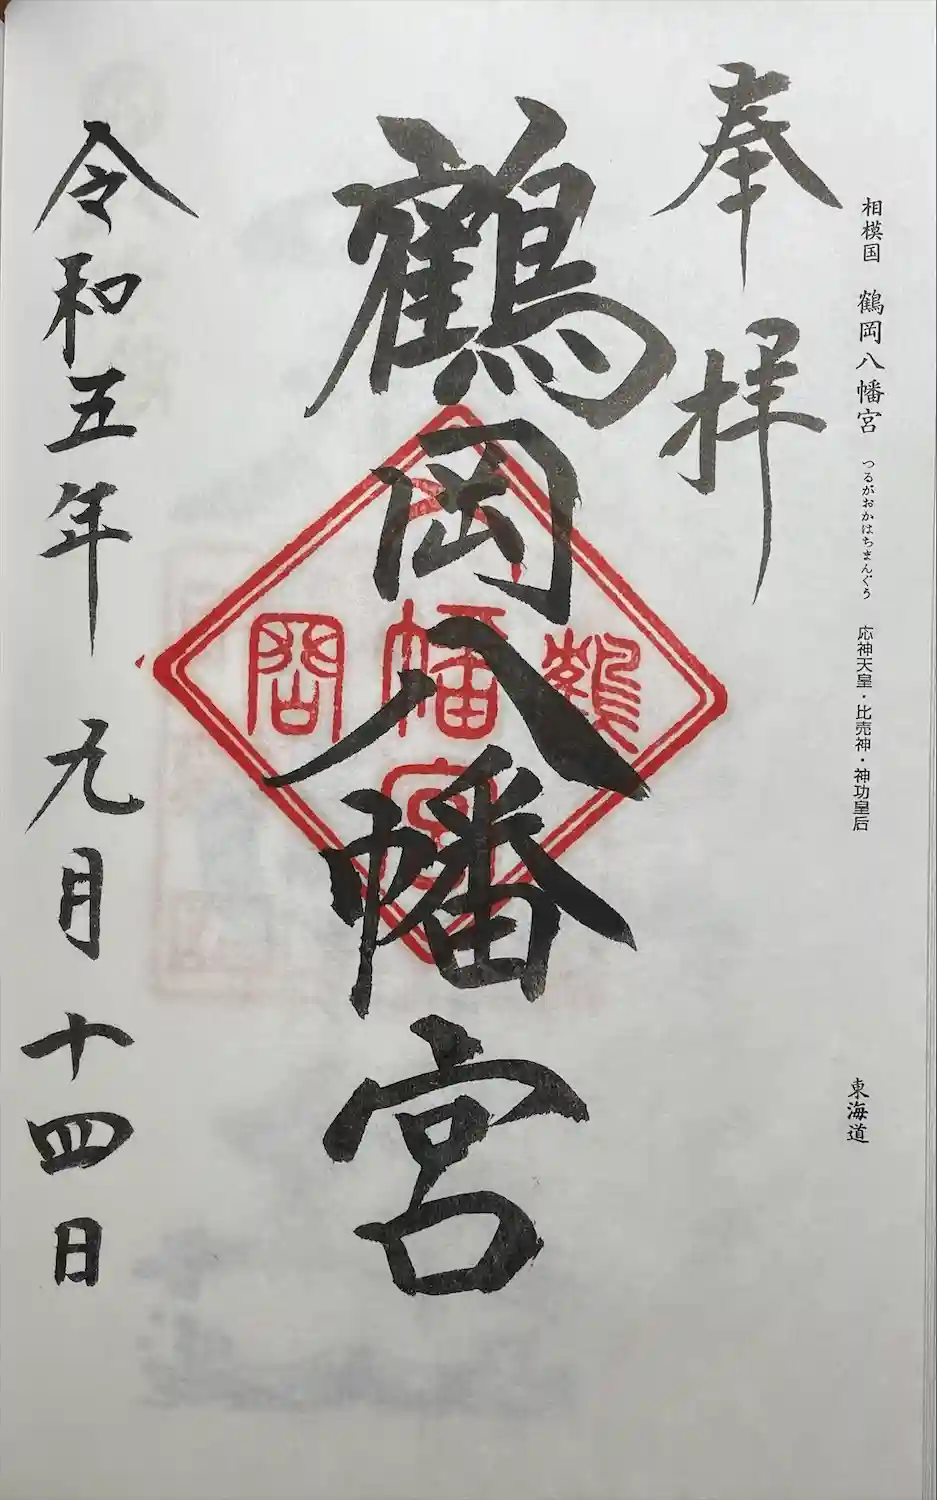 相模国 鶴岡八幡宮 つるがおかはちまんぐう 応神天皇・比売神・神功皇后
東海道
奉拝
鶴岡八幡宮
鶴
八幡宮
岡
令和五年 九月十四日